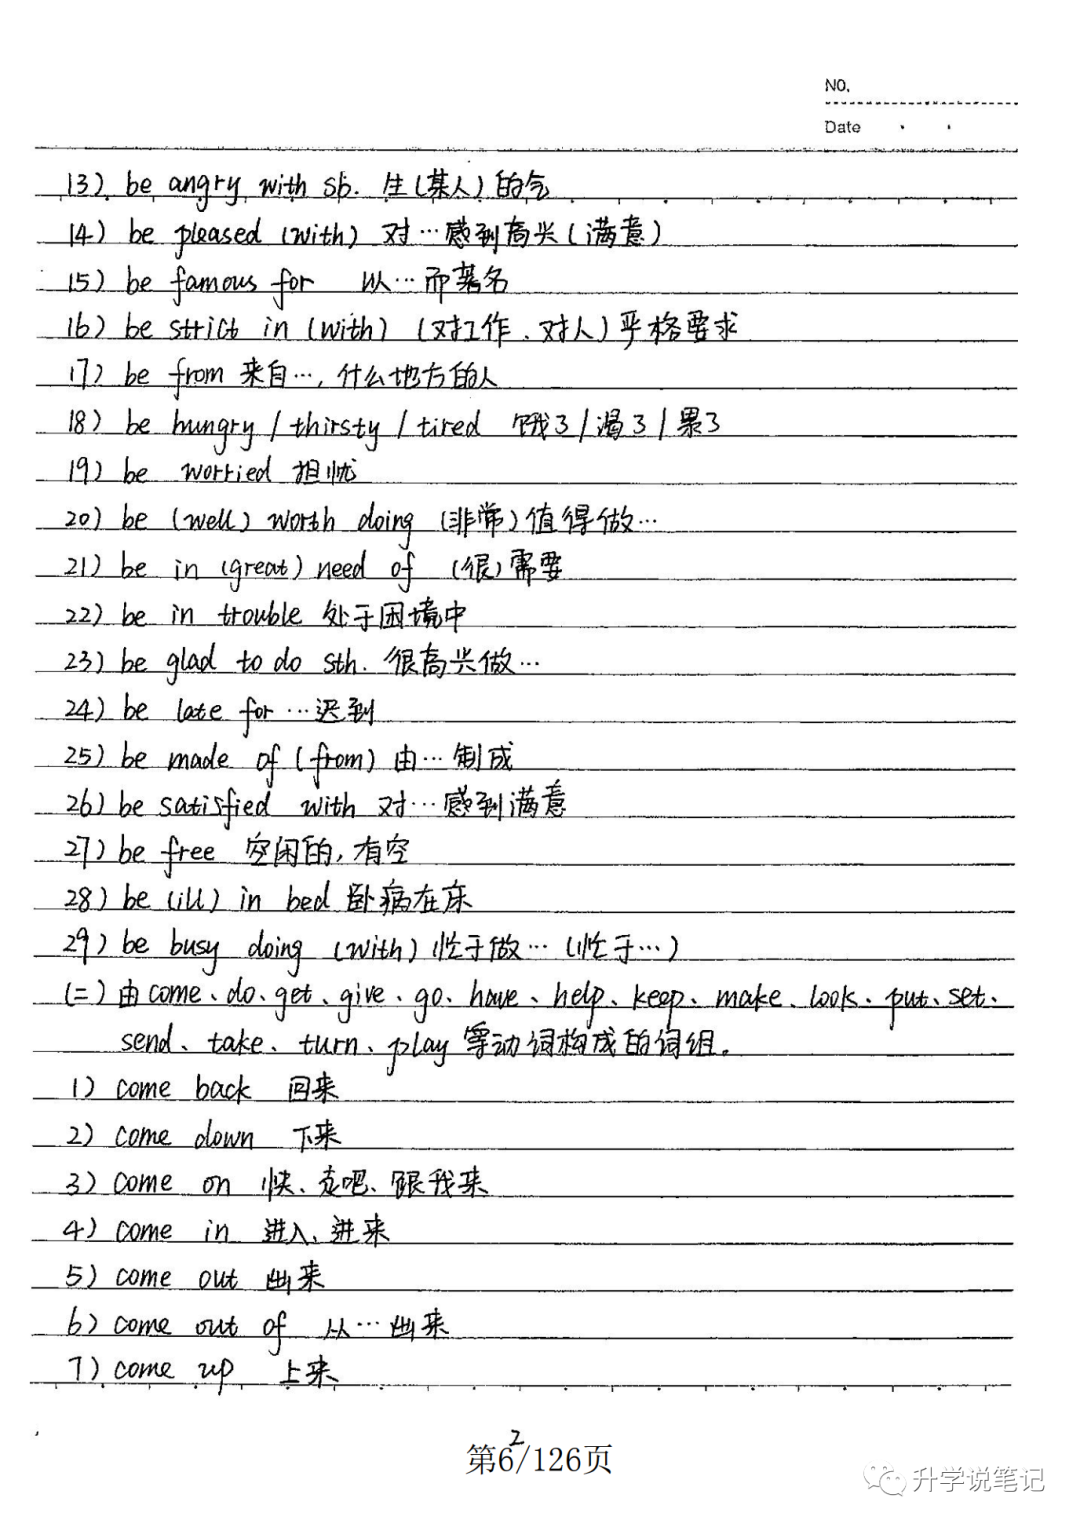 NO.
Date
13) be angry with sb. 生(某人)的气
14) be pleased (with) 对…感到高兴(满意)
15) be famous for 以…而著名
16) be strict in (with) (对工作、对人)严格要求
17) be from 来自…, 什么地方的人
18) be hungry / thirsty / tired 饿了/渴了/累了
19) be worried 担忧
20) be (well) worth doing (非常)值得做…
21) be in (great) need of (很)需要
22) be in trouble 处于困境中
23) be glad to do sth. 很高兴做…
24) be late for …迟到
25) be made of (from) 由…制成
26) be satisfied with 对…感到满意
27) be free 空闲的, 有空
28) be (ill) in bed 卧病在床
29) be busy doing (with) 忙于做… (忙于…)
(二) 由come、do、get、give、go、have、help、keep、make、look、put、set、
send、take、turn、play 等动词构成的词组。
1) come back 回来
2) come down 下来
3) come on 快、走吧、跟我来
4) come in 进入、进来
5) come out 出来
6) come out of 从…出来
7) come up 上来
2
第6/126页
升学说笔记